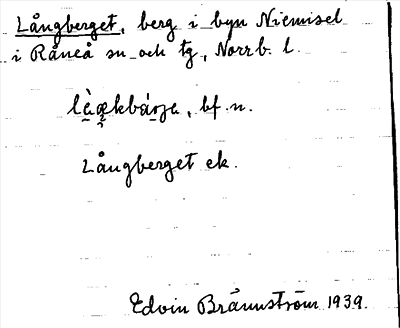 Långberget, berg i byn Niemisel
i Råneå sn och tg, Norrb. l.
bf. n.
Långberget ek.
Edvin Brännström 1939.